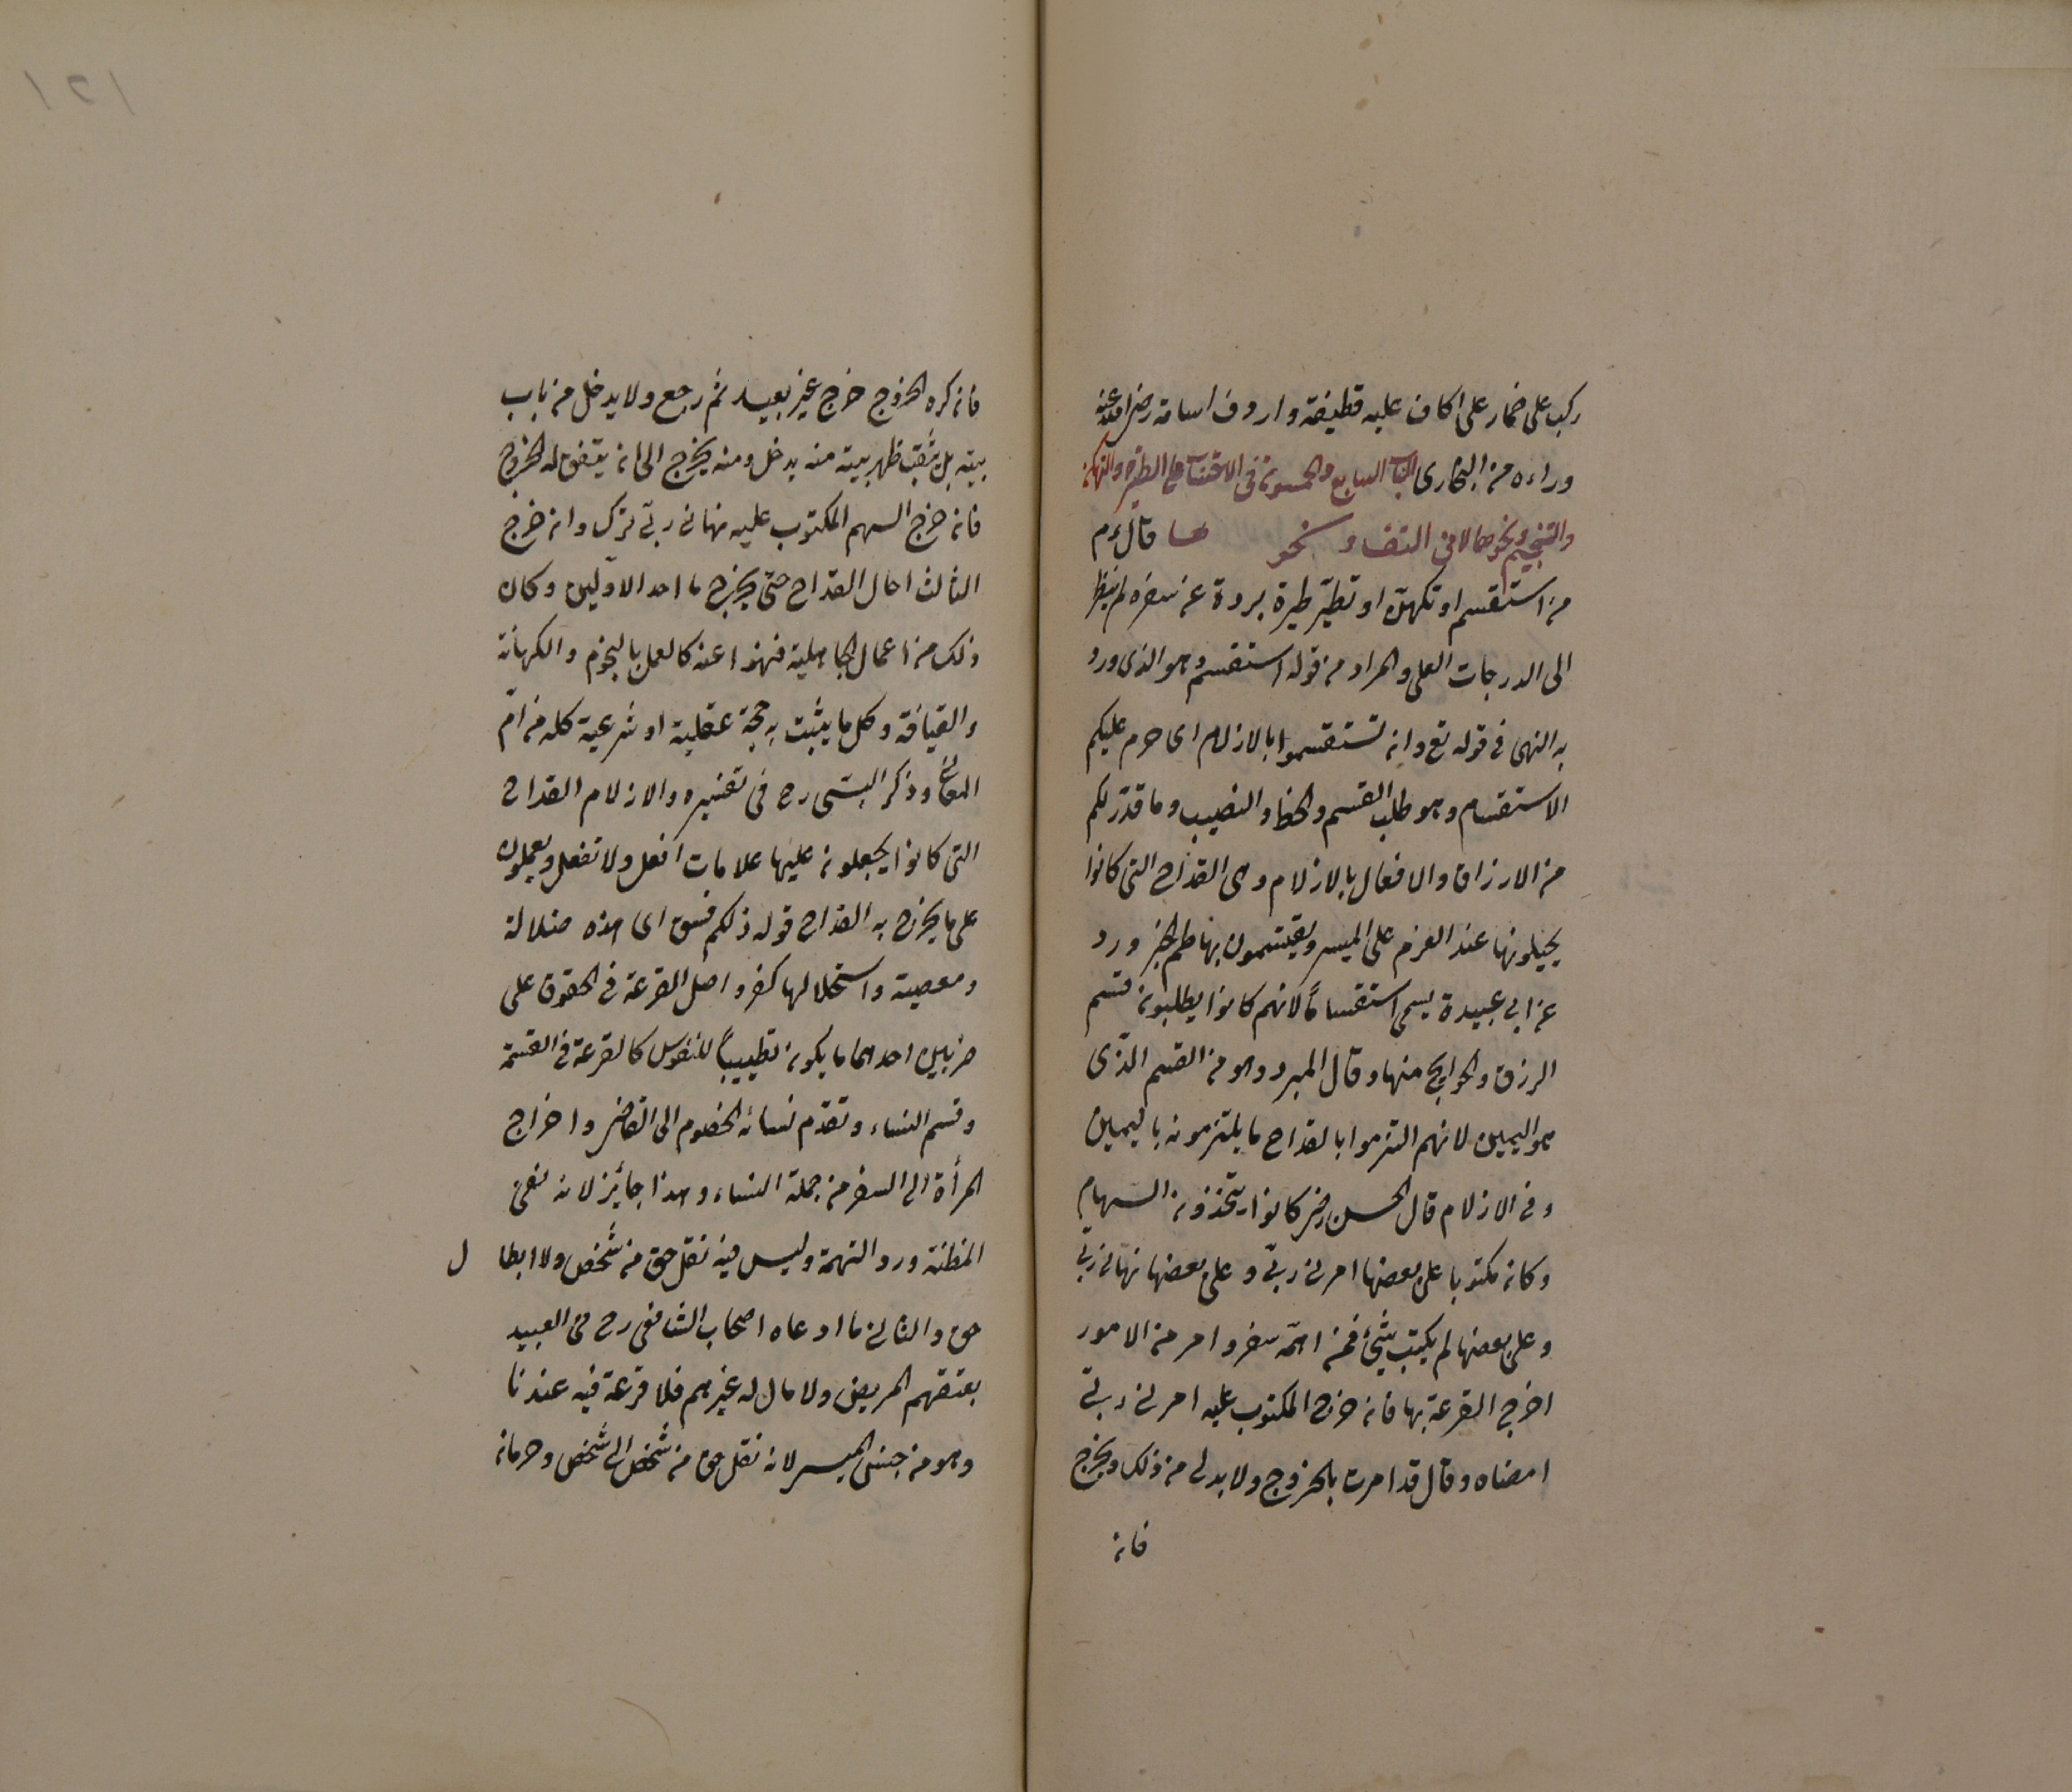 ركب على حمار على اكاف عليه قطيفة واردف اسامة رضى الله عنه
وراءه من البخارى الباب السابع والخمسون فى الاحتساب على الطيرة والتكهن
والتنجيم ونحوها لا فى التفاؤ نحو ها قال ءم
من استقسم او تكهن او تطير طيرة بردة عن سفره لم ينظر
الى الدرجات العلى والمراد من قوله استقسم هو الذى ورد
به النهى فى قوله تع وان تستقسموا بالازلام اى حرم عليكم
الاستقسام وهو طلب القسم والحظ والنصيب وما قدر لكم
من الارزاق والافعال بالازلام وهى القداح التى كانوا
يجيلونها عند العزم على الميسر ويقتسمون بها لحم الجزورد
عن ابى عبيدة يسمى استقساماً لانهم كانوا يطلبون قسم
الرزق والحوايج منها وقال المبرد وهو من القسم الذى
هو اليمين لانهم التزموا بالقداح ما يلتزمونه باليمين
وفى الازلام قال الحسن رض كانوا يتخذون السهام
وكان مكتوبا على بعضها امرنى ربى وعلى بعضها نهانى ربى
وعلى بعضها لم يكتب شئ فمن اهمه سفر وامر من الامور
اخرج القرعة بها فان خرج المكتوب عليه امرنى ربى
امضاه وقال قد امرت بالخروج ولا بد لى من ذلك ويخرج
فان
فان كره الخروج خرج غير بعيد ثم رجع ولا يدخل من باب
بيته بل ثقب ظهر بيته منه يدخل ومنه يخرج الى ان يتفق له الخروج
فان خرج السهم المكتوب عليه نهانى ربى ترك وان خرج
الثالث احال القداح حتى يخرج ما احد الاولين وكان
ذلك من اعمال الجاهلية فنهوا عنه كالعمل بالنجوم والكهانة
والقيافة وكل ما يثبت به حجة عقلية او شرعية كله من ام
وذكر البستى رح فى تفسيره والازلام القداح
التى كانوا يجعلون عليها علامات افعل ولا تفعل ويعملون
على ما يخرج به القداح قوله ذلكم فسق اى هذه ضلالة
ومعصية واستحلالها كفر واصل القرعة فى الحقوق على
ضربين احدهما ما يكون تطييباً للنفوس كالقرعة فى القسمة
وقسم النساء وتقدم نسائه الخصوم الى القاضى واخراج
المرأة الى السفر من جملة النساء وهذا جائز لانه نفى
المظنة ورد التهمة وليس فيه نقل حق من شخص ولا ابطا ل
حق والثانى ما ادعاه اصحاب الشافعى رح فى العبيد
يعتقهم المريض ولا مال له غيرهم فلا قرعة فيه عندنا
وهو من جنس الميسر لانه نقل حق من شخص الى شخص وحرمانه
١٢١